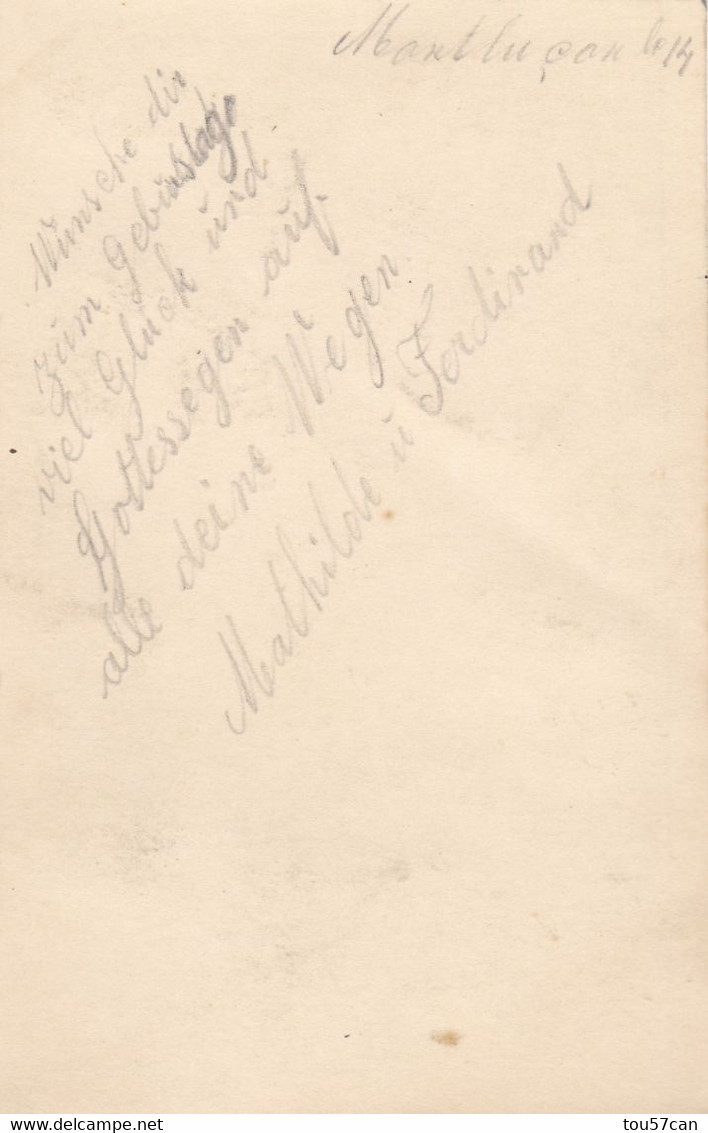 Montluçon le 14
Wünsche dir
zum Gebürstage
viel Glück und
Gottessegen auf
alle deine Wegen.
Mathilde u Ferdinand
delcampe.net
tou57can